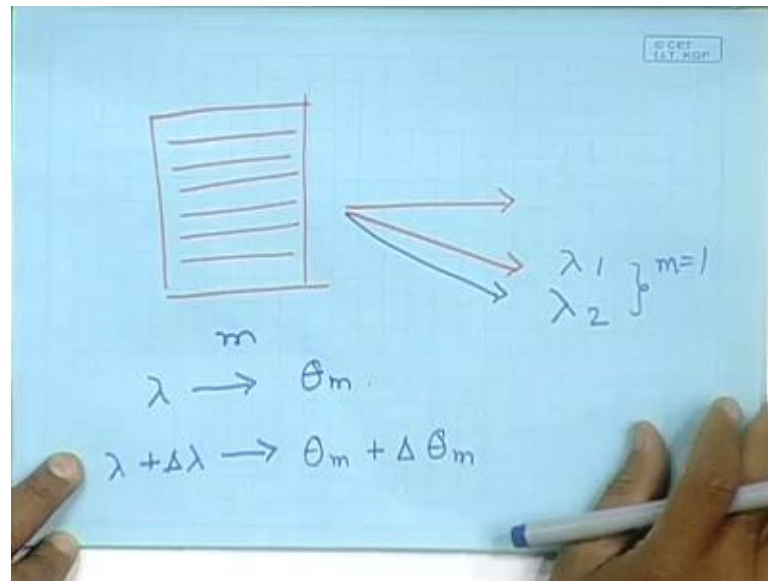 © CET
I.I.T. KGP
λ 1
λ 2 } m=1
m
λ → θm
λ + Δλ → θm + Δθm